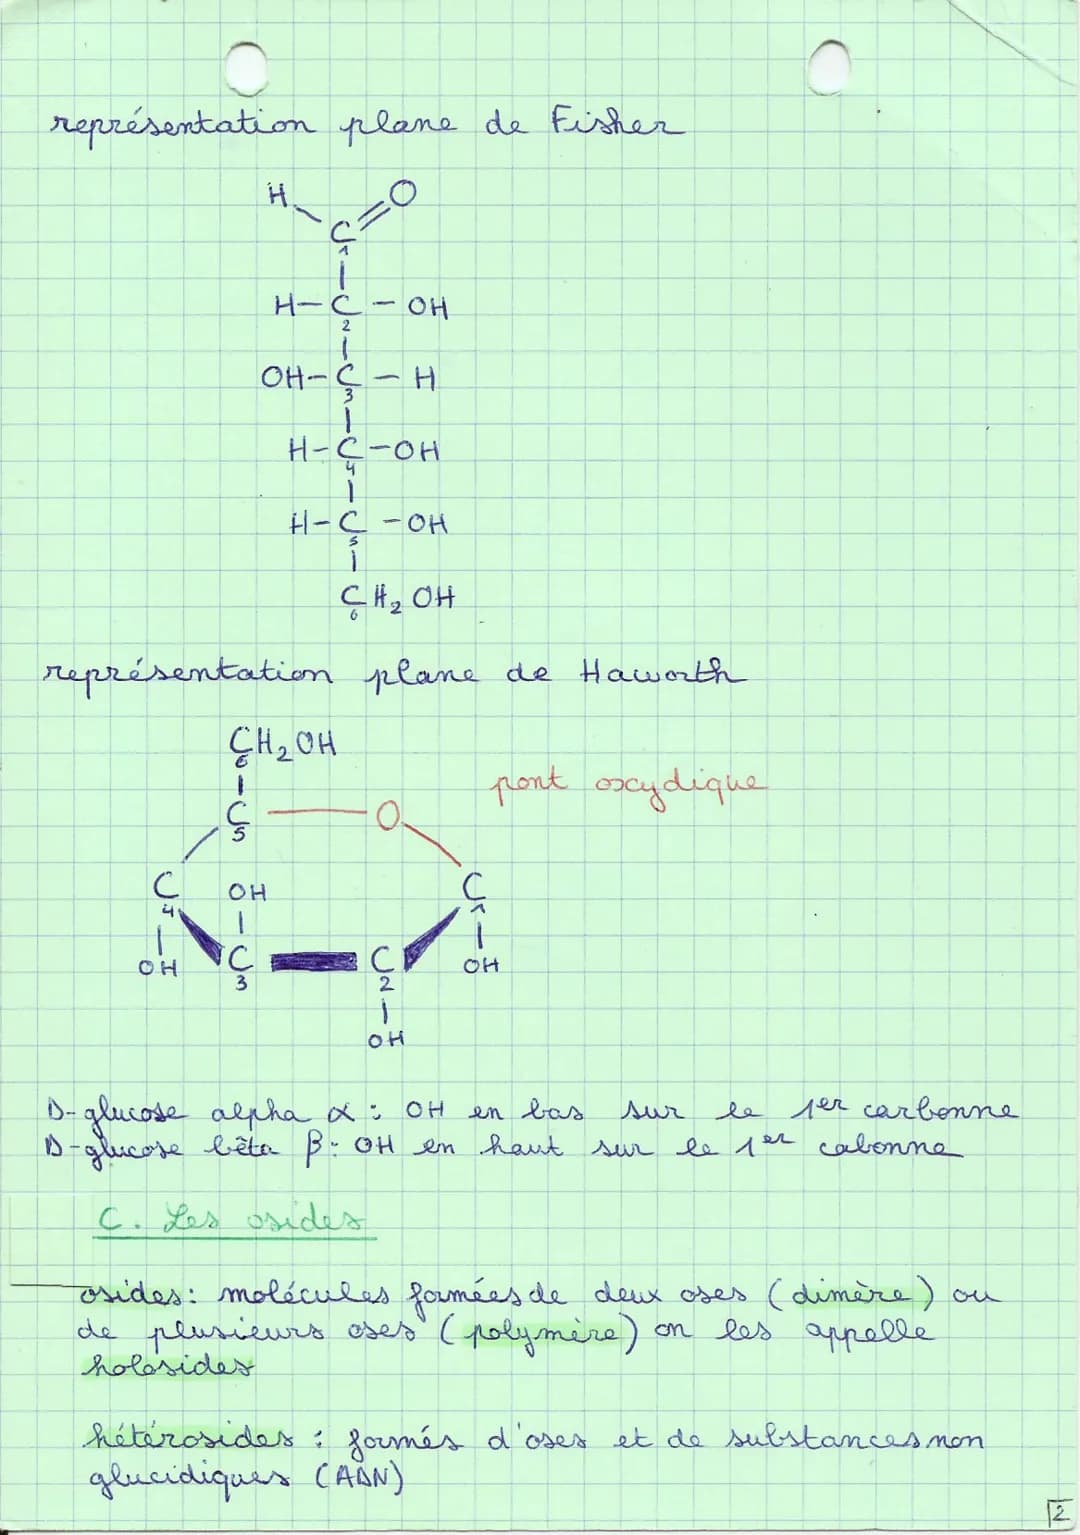 représentation plane de Fisher
H O
C
1
H-C-OH
2
OH-C-H
3
H-C-OH
4
H-C-OH
5
CH2OH
6
représentation plane de Haworth
CH2OH
6
pont oxydique
C O
5
C OH C
4 1
OH C C OH
3 2
OH
D-glucose alpha α : OH en bas sur le 1er carbonne
D-glucose bêta β : OH en haut sur le 1er cabonne
C. Les osides
osides : molécules formées de deux oses (dimère) ou
de plusieurs oses (polymère) on les appelle
holosides
hétérosides : formés d'oses et de substances non
glucidiques (ADN)
2